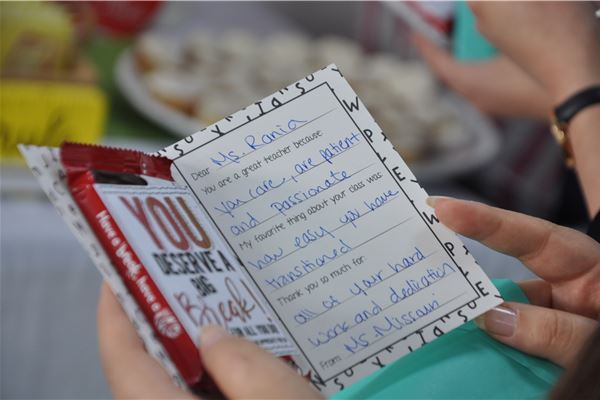 Have a break, have a
YOU
DESERVE A
BIG
Break!
FOR ALL YOU DO
Dear Ms. Rania
You are a great teacher because
you care, are patient
and passionate
My favorite thing about your class was
how easy you have
transitioned
Thank you so much for
all of your hard
work and dedication
From Ms. Misrash